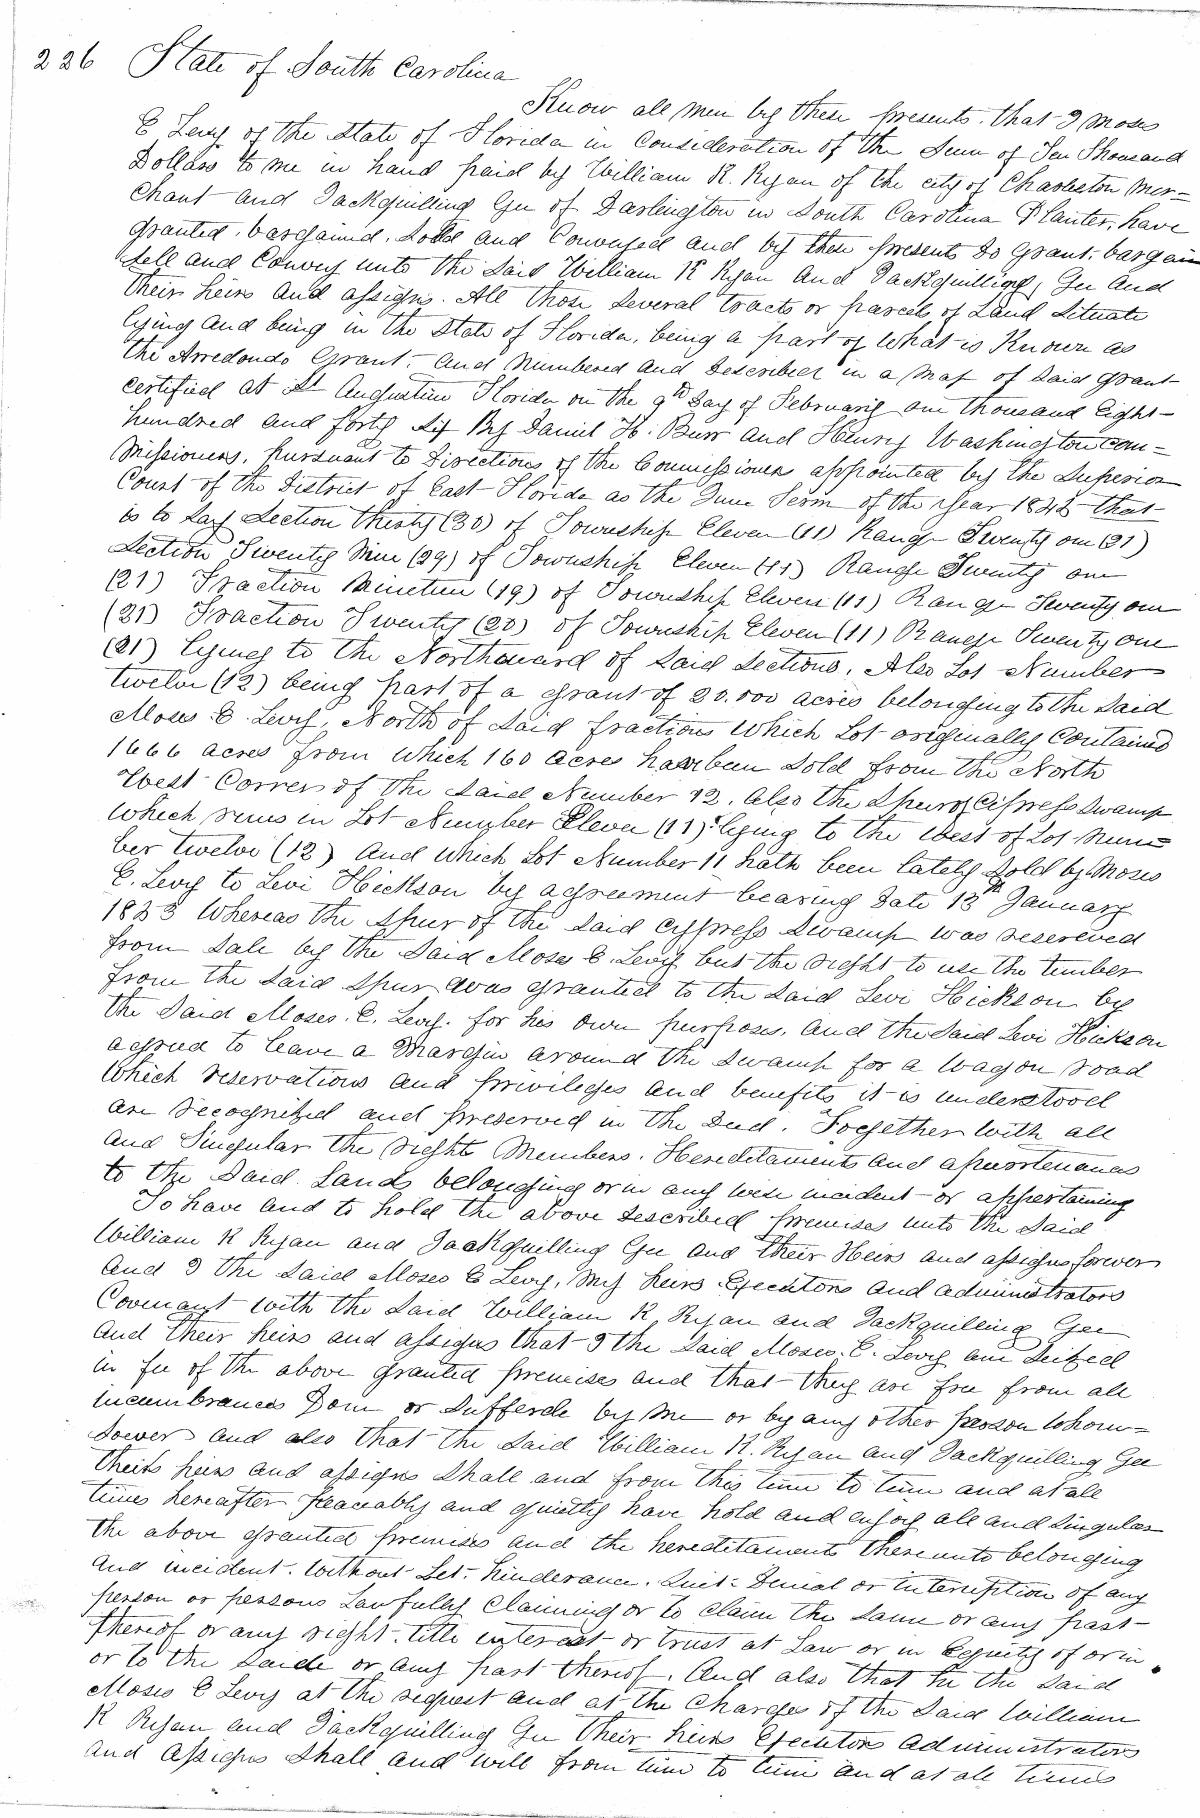 226 State of South Carolina
Know all Men by these presents. that I Moses
E Levy of the State of Florida in Consideration of the Sum of Ten Thousand
Dollars to me in hand paid by William R. Ryan of the city of Charleston Mer=
chant and Jackquilling Gee of Darlington in South Carolina Planter, have
granted. bargained. Sold and Conveyed and by these presents Do Grant. bargain
Sell and Convey unto the Said William R Ryan and Jackquilling Gee and
their heirs and assigns. All those Several tracts or parcels of Land Situate
lying and being in the State of Florida, being a part of what is Known as
the Arredondo Grant. and Numbered and Described in a Map of Said grant
certified at St Augustine Florida on the 9th Day of February one thousand Eight-
hundred and forty Six By Daniel H. Burr and Henry Washington com=
missioners, pursuant to Directions of the Commissioners appointed by the Superior
Court of the District of East Florida as the June Term of the Year 184 that
is to Say Section thirty (30) of Township Eleven (11) Range Twenty one (21)
Section Twenty Nine (29) of Township Eleven (11) Range Twenty one
(21) Fraction Nineteen (19) of Township Eleven (11) Range Twenty one
(21) Fraction Twenty (20) of Township Eleven (11) Range Twenty one
(21) lying to the Northward of Said Sections, Also Lot Number
twelve (12) being part of a grant of 20.000 acres belonging to the Said
Moses E. Levy, North of Said fractions Which Lot originally Contained
1666 acres from which 160 acres has been Sold from the North
West Corner of the Said Number 12. Also the Spur of Cipress Swamp
which runs in Lot Number Eleven (11) lying to the West of Lot Num=
ber twelve (12) and which Lot Number 11 hath been lately Sold by Moses
E. Levy to Levi Hickson by agreement bearing Date 13th January
1853 Whereas the Spur of the Said cypress Swamp was reserved
from Sale by the Said Moses E. Levy but the right to use the timber
from the Said Spur was granted to the Said Levi Hickson by
the Said Moses. E. Levy. for his own purposes. and the Said Levi Hickson
agreed to leave a Margin around the Swamp for a wagon road
Which reservations and privileges and benefits it is understood
are recognized and preserved in the Deed. Together with all
and Singular the rights Members. Hereditaments and apurtenances
to the Said Lands belonging or in any wise incident or appertaining
To have and to hold the above described premises unto the Said
William R Ryan and Jackquilling Gee and their Heirs and assigns forever
And I the Said Moses E Levy, My heirs Executors and administrators
Covenant with the Said William R Ryan and Jackquilling Gee
and their heirs and assigns that I the Said Moses. E. Levy am Seized
in fee of the above granted premises and that they are free from all
incumbrances Done or Sufferde by Me or by any other person Whom=
soever and also that the Said William R. Ryan and Jackquilling Gee
Theirs heirs and assigns Shall and from this time to time and at all
times hereafter peaceably and quietly have hold and enjoy all and Singular
the above granted premises and the hereditaments thereunto belonging
and incident. without Let. hinderance. Suit. Denial or interruption of any
person or persons Lawfully Claiming or to claim the Same or any part
thereof or any right. title interest or trust at Law or in Equity of or in
or to the Saide or any part thereof. And also that he the Said
Moses E Levy at the request and at the Charges of the Said William
R Ryan and Jackquilling Gee Their heirs Executors administrators
and assigns Shall and will from time to time and at all times